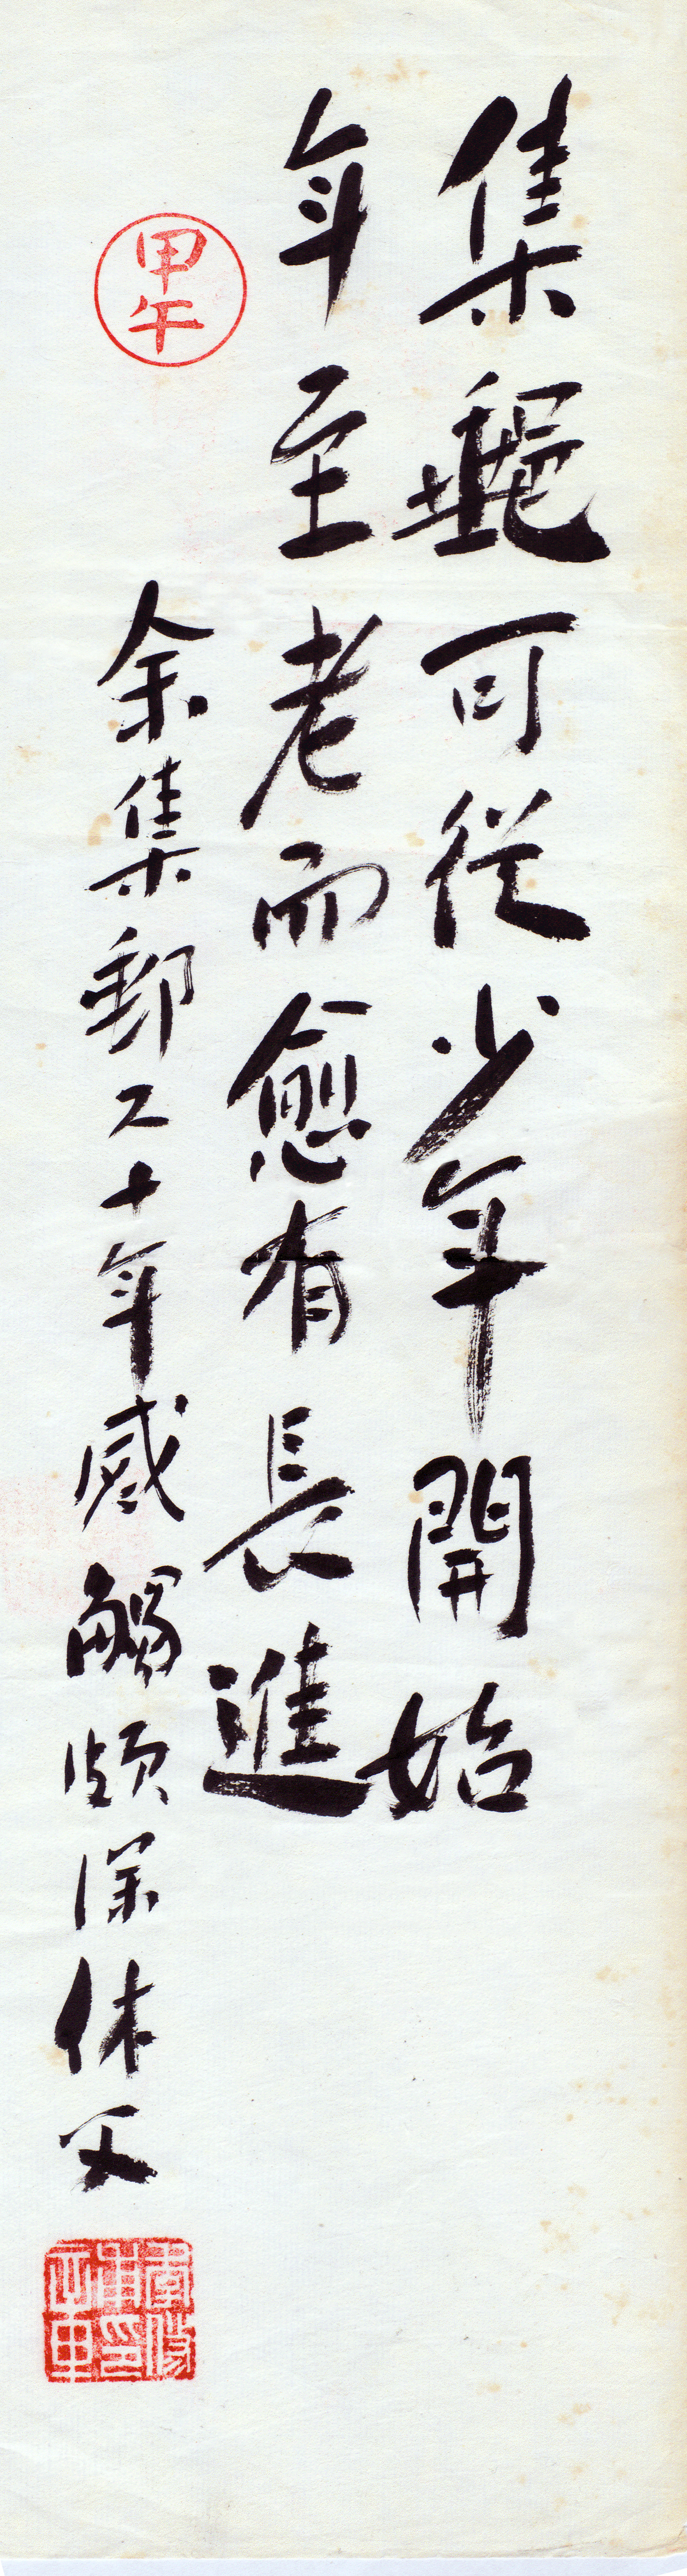 集郵可從少年開始
年至老而愈有長進
余集郵六十年感觸頗深休文
甲午